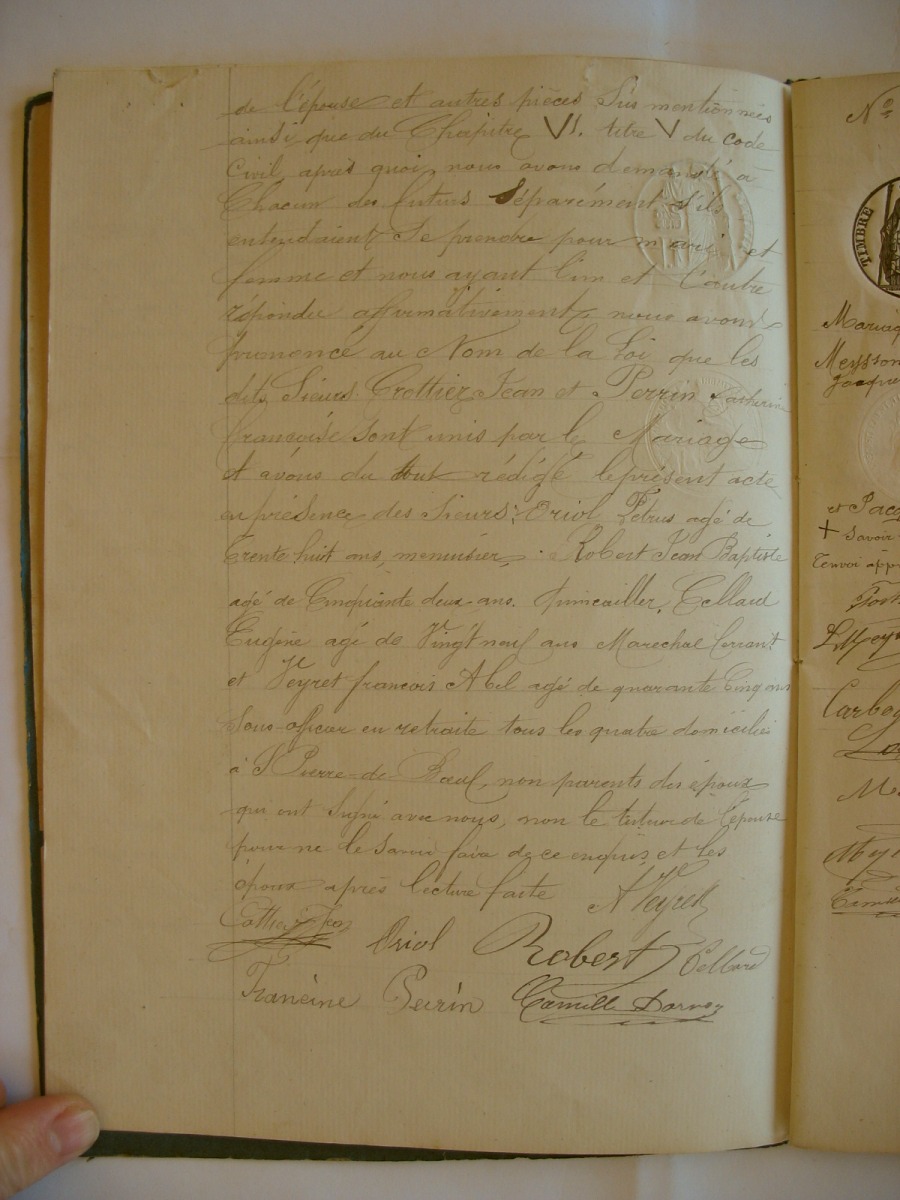 de l'épouse et autres pièces Sus mentionnées
ainsi que du Chapitre VI. titre V du code
Civil, après quoi, nous avons demandé à
Chacun des futurs Séparément s'ils
entendaient Se prendre pour mari et
femme et nous ayant l'un et l'autre
répondu affirmativement, nous avons
prononcé au Nom de la Loi que les
dits Sieurs Crottier Jean et Perrin Catherine
françoise Sont unis par le Mariage
et avons du tout rédigé le présent acte
en présence des Sieurs: Oriol Petrus agé de
trente huit ans, menuisier, Robert Jean Baptiste
agé de Cinquante deux ans. quincailler, Cellard
Eugène agé de Vingt neuf ans Marechal ferrant
et Veyret françois Abel agé de quarante Cinq ans
Sous-officier en retraite tous les quatre domiciliés
à St Pierre-de-Bœuf, non parents des époux
qui ont Signé avec nous, non le tuteur de l'épouse
pour ne le Savoir faire de ce enquis et les
époux après lecture faite A Veyret
Oriol Robert Cellard
Francine Perrin Camille
No
TIMBRE
Mariag
Meysson
Jacques
et Jacq
+ Savoir
renvoi app